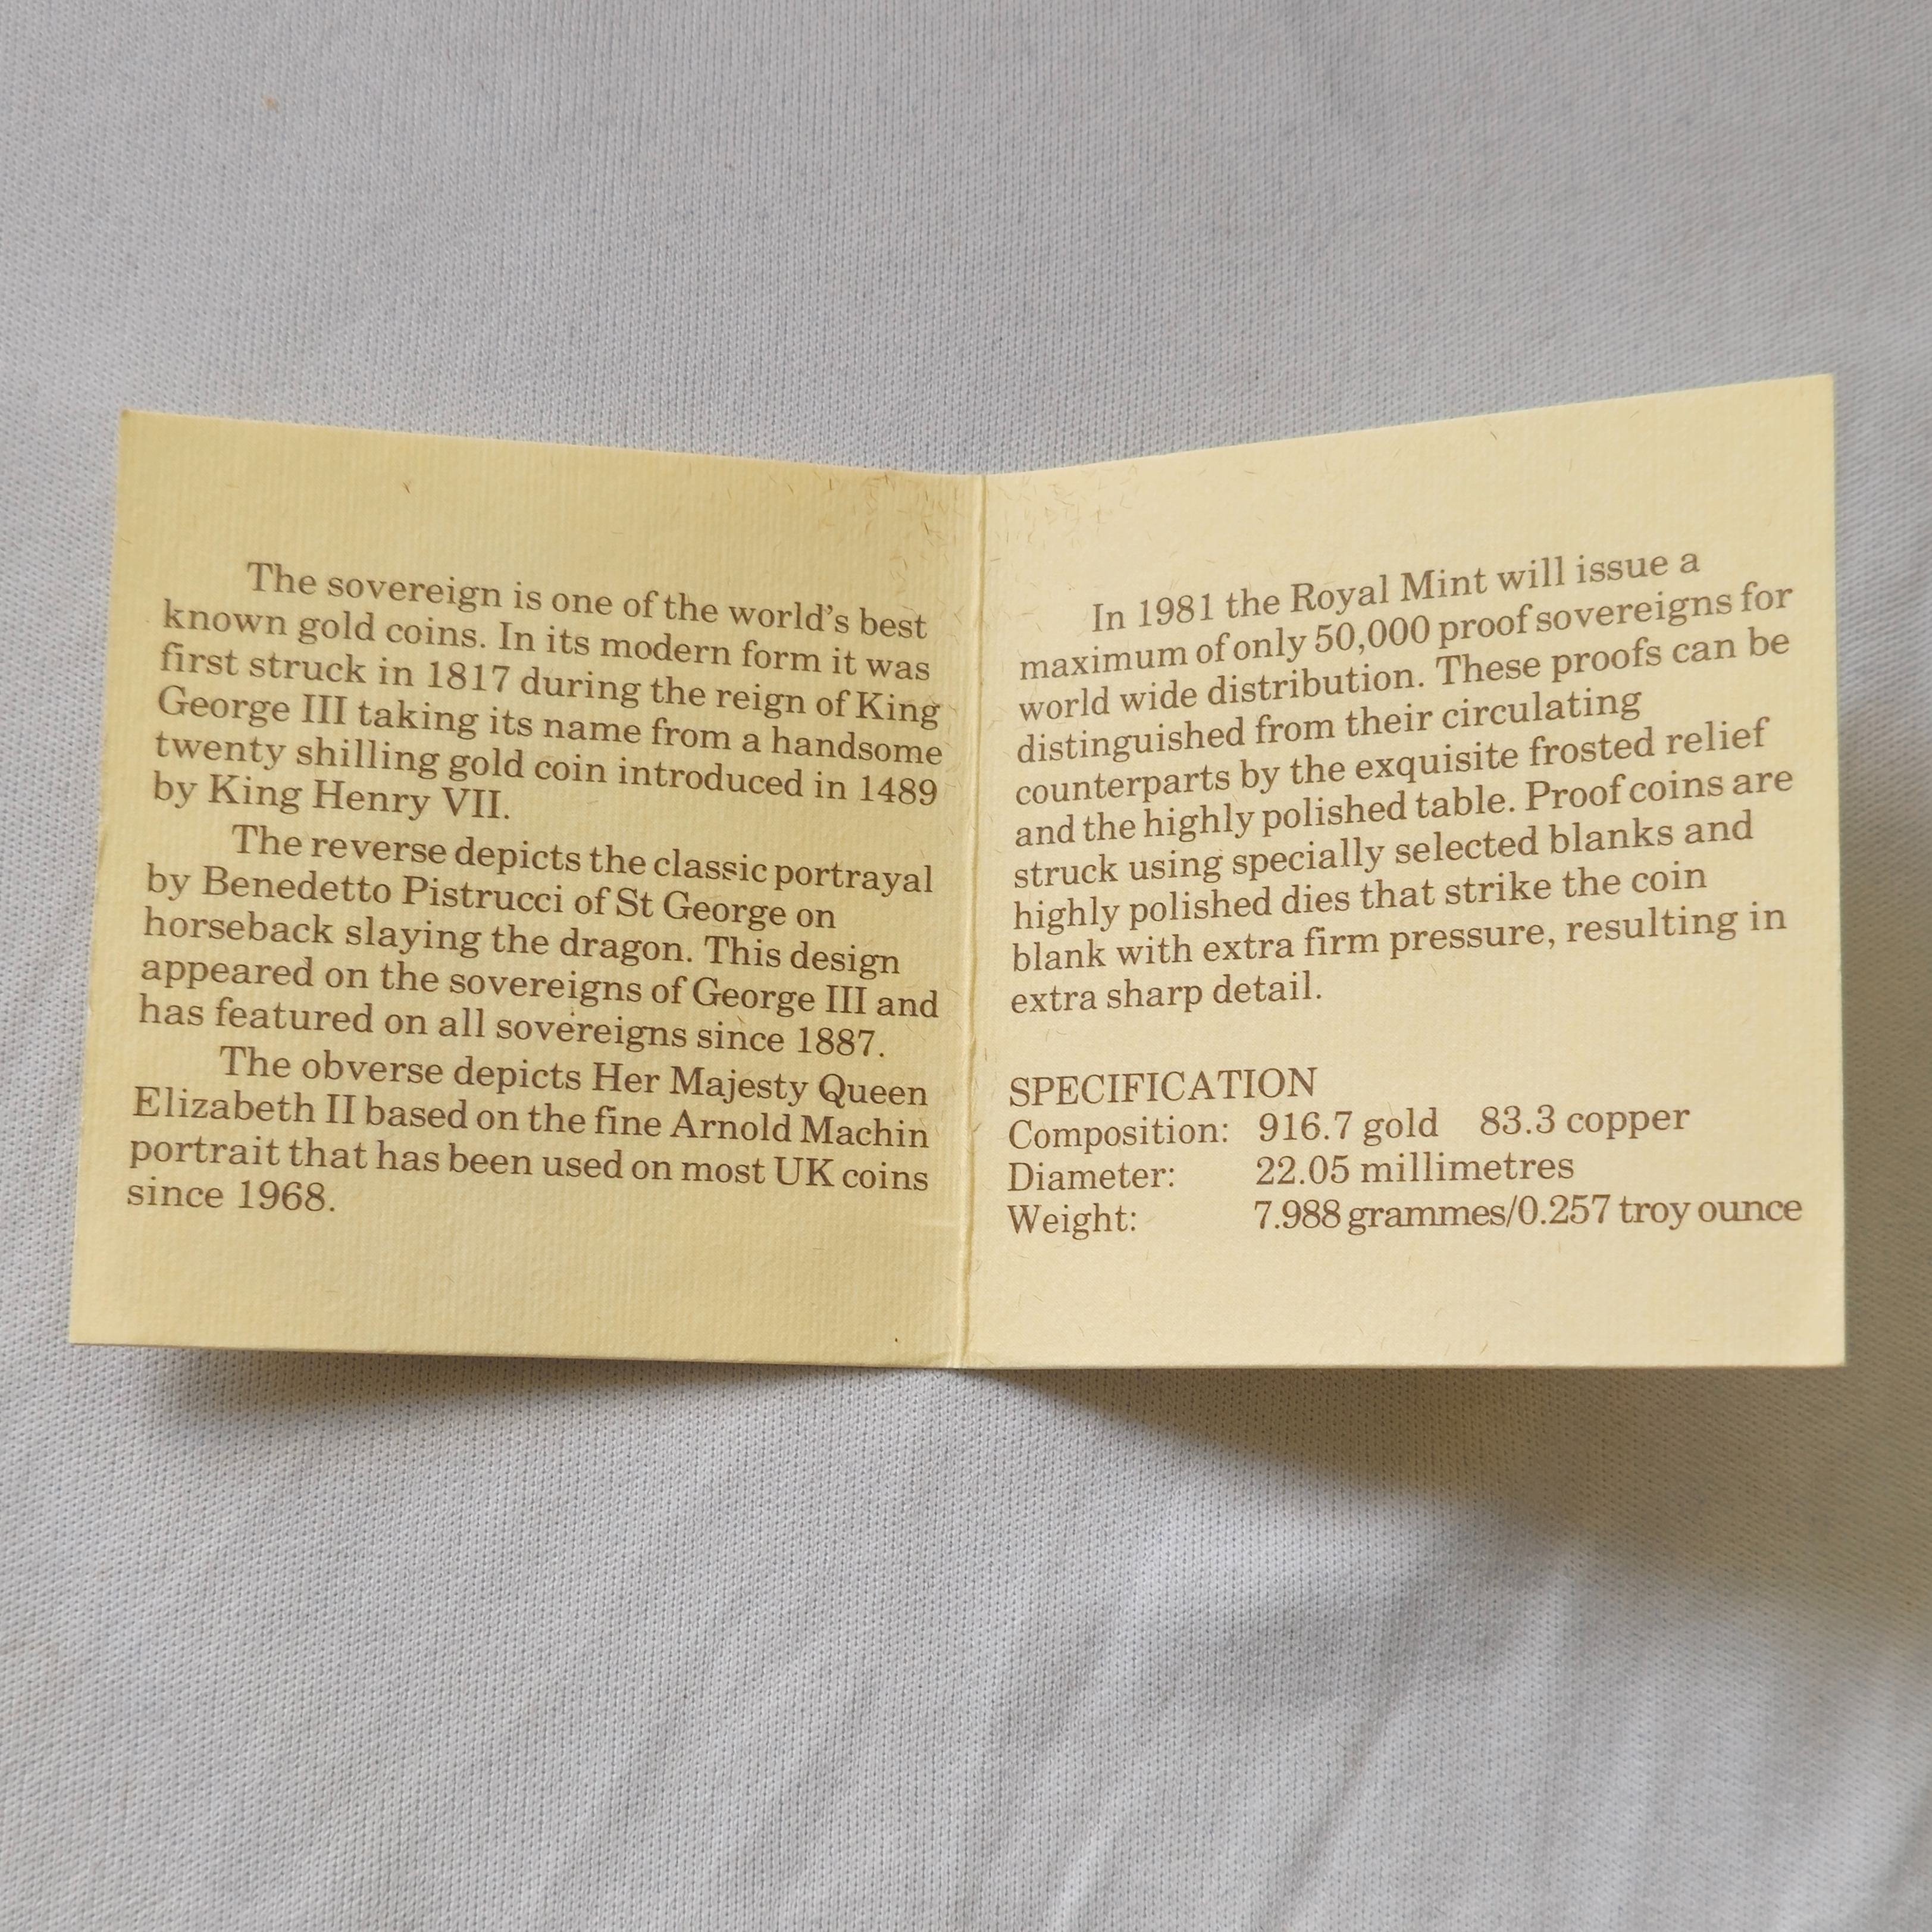 The sovereign is one of the world's best
known gold coins. In its modern form it was
first struck in 1817 during the reign of King
George III taking its name from a handsome
twenty shilling gold coin introduced in 1489
by King Henry VII.
The reverse depicts the classic portrayal
by Benedetto Pistrucci of St George on
horseback slaying the dragon. This design
appeared on the sovereigns of George III and
has featured on all sovereigns since 1887.
The obverse depicts Her Majesty Queen
Elizabeth II based on the fine Arnold Machin
portrait that has been used on most UK coins
since 1968.
In 1981 the Royal Mint will issue a
maximum of only 50,000 proof sovereigns for
world wide distribution. These proofs can be
distinguished from their circulating
counterparts by the exquisite frosted relief
and the highly polished table. Proof coins are
struck using specially selected blanks and
highly polished dies that strike the coin
blank with extra firm pressure, resulting in
extra sharp detail.
SPECIFICATION
Composition: 916.7 gold 83.3 copper
Diameter: 22.05 millimetres
Weight: 7.988 grammes/0.257 troy ounce